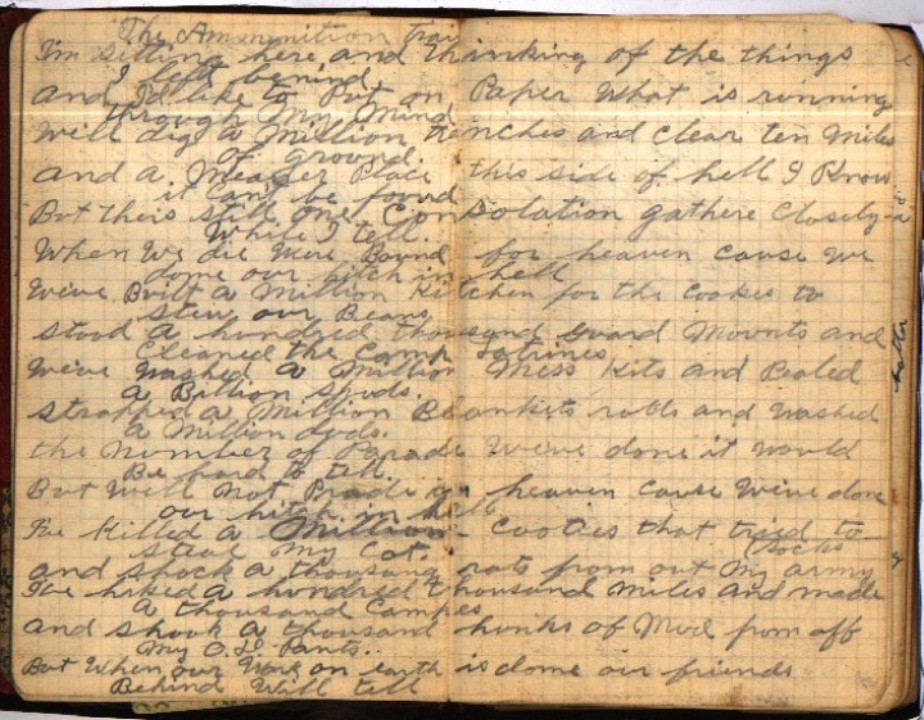 The Ammunition trai
I'm sitting here and thinking of the things
I left behind
and I'd like to Put on Paper What is running
through My Mind
Will dig a Million trenches and clear ten miles
of ground.
and a Meaner Place this side of hell I Know
it Can't be found
But theis still one Consolation gathere Closely
While I tell.
When We die Were Bound for heaven cause we
done our hitch in hell
We've Built a Million Kitchen for the Cookes to
stew our Beans
stood a hundred thousand guard Mounts and
Cleaned the Camp Latrines
We've washed a Million Mess Kits and Pealed
a Billion spuds.
strapped a Million Blankets rolls and washed
a Million duds.
the number of Parade We've done it would
Be hard to tell.
But Will Not Prade in heaven cause We've done
our hitch in hell
I've Killed a Million Cooties that tried to
steal My Cot.
and shook a thousand rats from out My army
Socks
I've hiked a hundred thousand Miles and made
a thousand Campes
and shook a thousand hunks of Mud from off
My O.D. Pants..
But When our Work on earth is done our friends
Behind Will tell